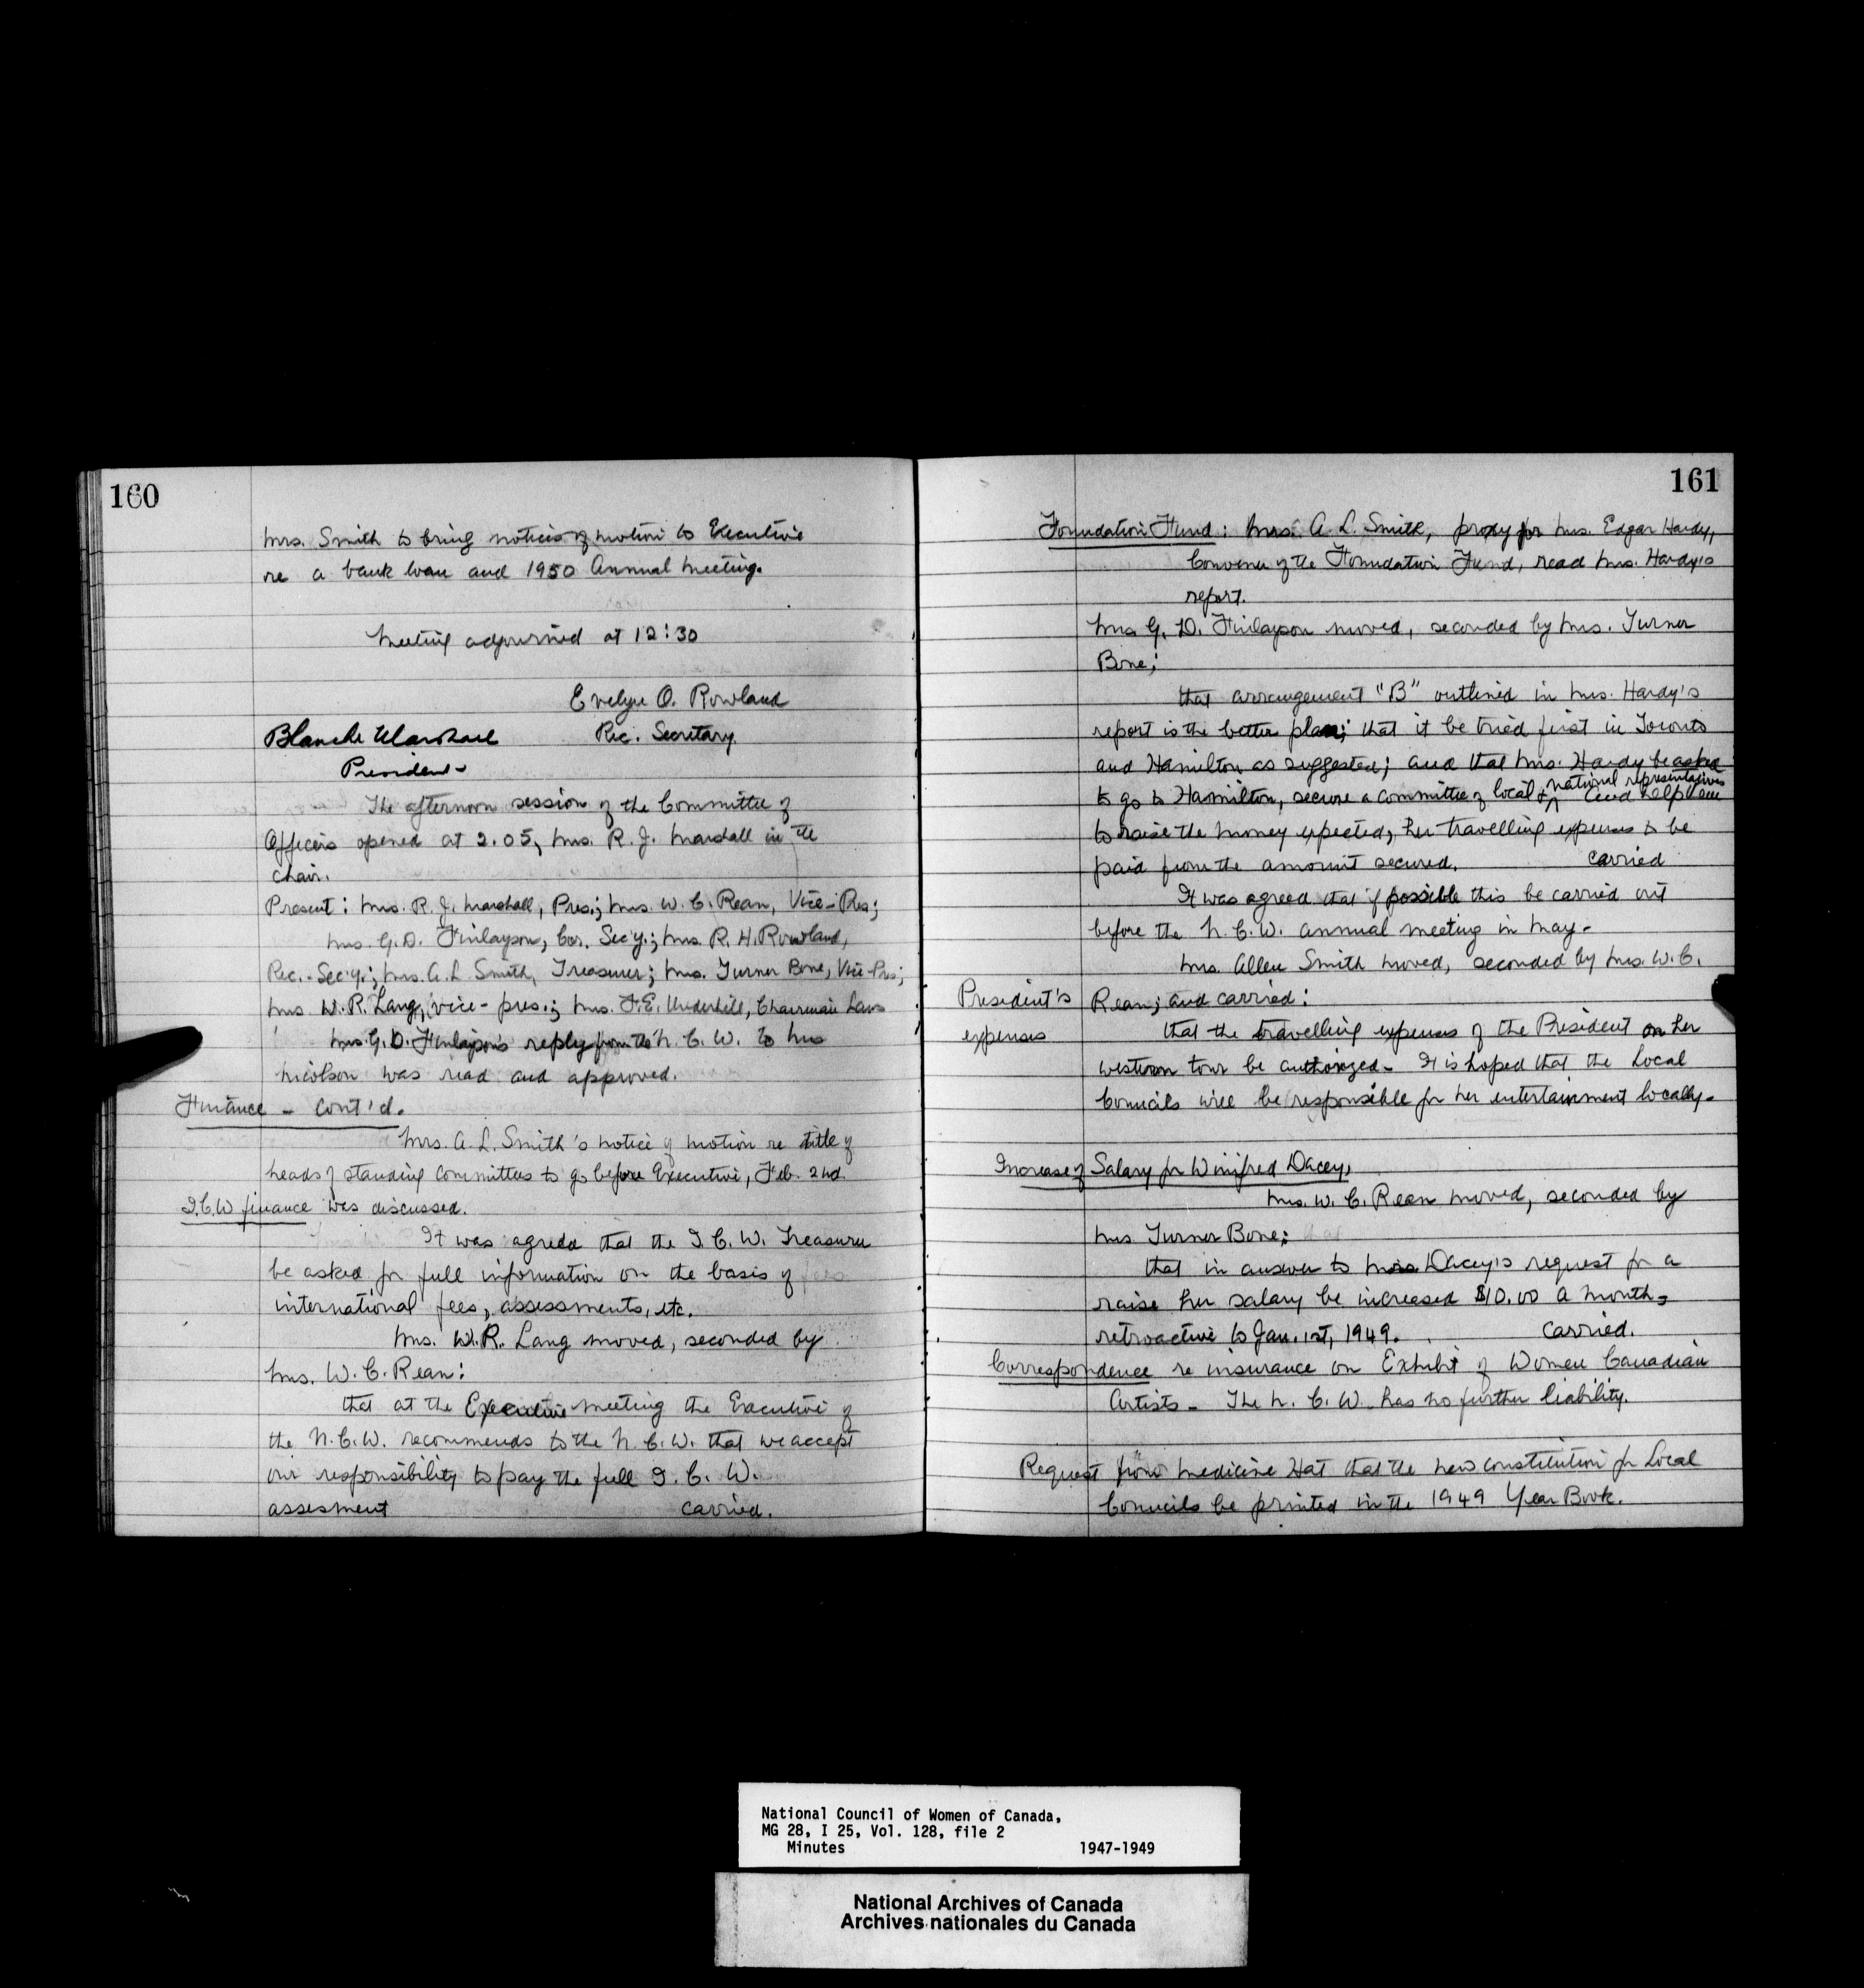 160
Mrs. Smith to bring notices of motion to Executive
re a bank loan and 1950 Annual Meeting.
Meeting adjourned at 12:30
Evelyn O. Rowland
Blanche Marshall Rec. Secretary
President
The afternoon session of the Committee of
Officers opened at 2.05, Mrs. R. J. Marshall in the
chair.
Present: Mrs. R. J. Marshall, Pres.; Mrs. W. C. Rean, Vice-Pres;
Mrs. G.D. Finlayson, Cor. Sec'y.; Mrs. R. H. Rowland,
Rec.-Sec'y.; Mrs. A. L Smith, Treasurer; Mrs. Turner Bone, Vice-Pres;
Mrs. W. R. Lang, vice-pres.; Mrs. F. E. Underhill, Chairman Laws
Mrs. G. D. Finlayson's reply from the N. C. W. to Mrs
Nicolson was read and approved.
Finance - Cont'd.
Mrs. A. L. Smith's notice of motion re title of
heads of standing committees to go before Executive, Feb. 2nd.
I.C.W finance was discussed.
It was agreed that the I. C. W. Treasurer
be asked for full information on the basis of
international fees, assessments, etc.
Mrs. W. R. Lang moved, seconded by
Mrs. W. C. Rean:
that at the Executive meeting the Executive of
the N.C.W. recommends to the N. C. W. that we accept
our responsibility to pay the full I. C. W.
assesment carried.
161
Foundation Fund: Mrs. A. L. Smith, proxy for Mrs. Edgar Hardy,
Convener of the Foundation Fund, read Mrs. Hardy's
report.
Mrs G. D. Finlayson moved, seconded by Mrs. Turner
Bone;
that arrangement "B" outlined in Mrs. Hardy's
report is the better plan; that it be tried first in Toronto
and Hamilton as suggested; and that Mrs. Hardy be asked
to go to Hamilton, secure a committee of local & national representatives and help
to raise the money expected, her travelling expenses to be
paid from the amount secured. carried
It was agreed that if possible this be carried out
before the N. C. W. annual meeting in May-
Mrs. Allen Smith moved, seconded by Mrs. W. C.
President's Rean; and carried:
expenses that the travelling expenses of the President on her
western tour be authorized- It is hoped that the Local
Councils will be responsible for her entertainment locally-
Increase of Salary for Winifred Dacey,
Mrs. W. C. Rean moved, seconded by
Mrs Turner Bone;
that in answer to Miss Dacey's request for a
raise her salary be increased $10.00 a month,
retroactive to Jan. 1st, 1949. Carried.
Correspondence re insurance on Exhibit of Women Canadian
Artists - The N. C. W. has no further liability.
Request from Medicine Hat that the new constitution for Local
Councils be printed in the 1949 Year Book.
National Council of Women of Canada,
MG 28, I 25, Vol. 128, file 2
Minutes 1947-1949
National Archives of Canada
Archives nationales du Canada